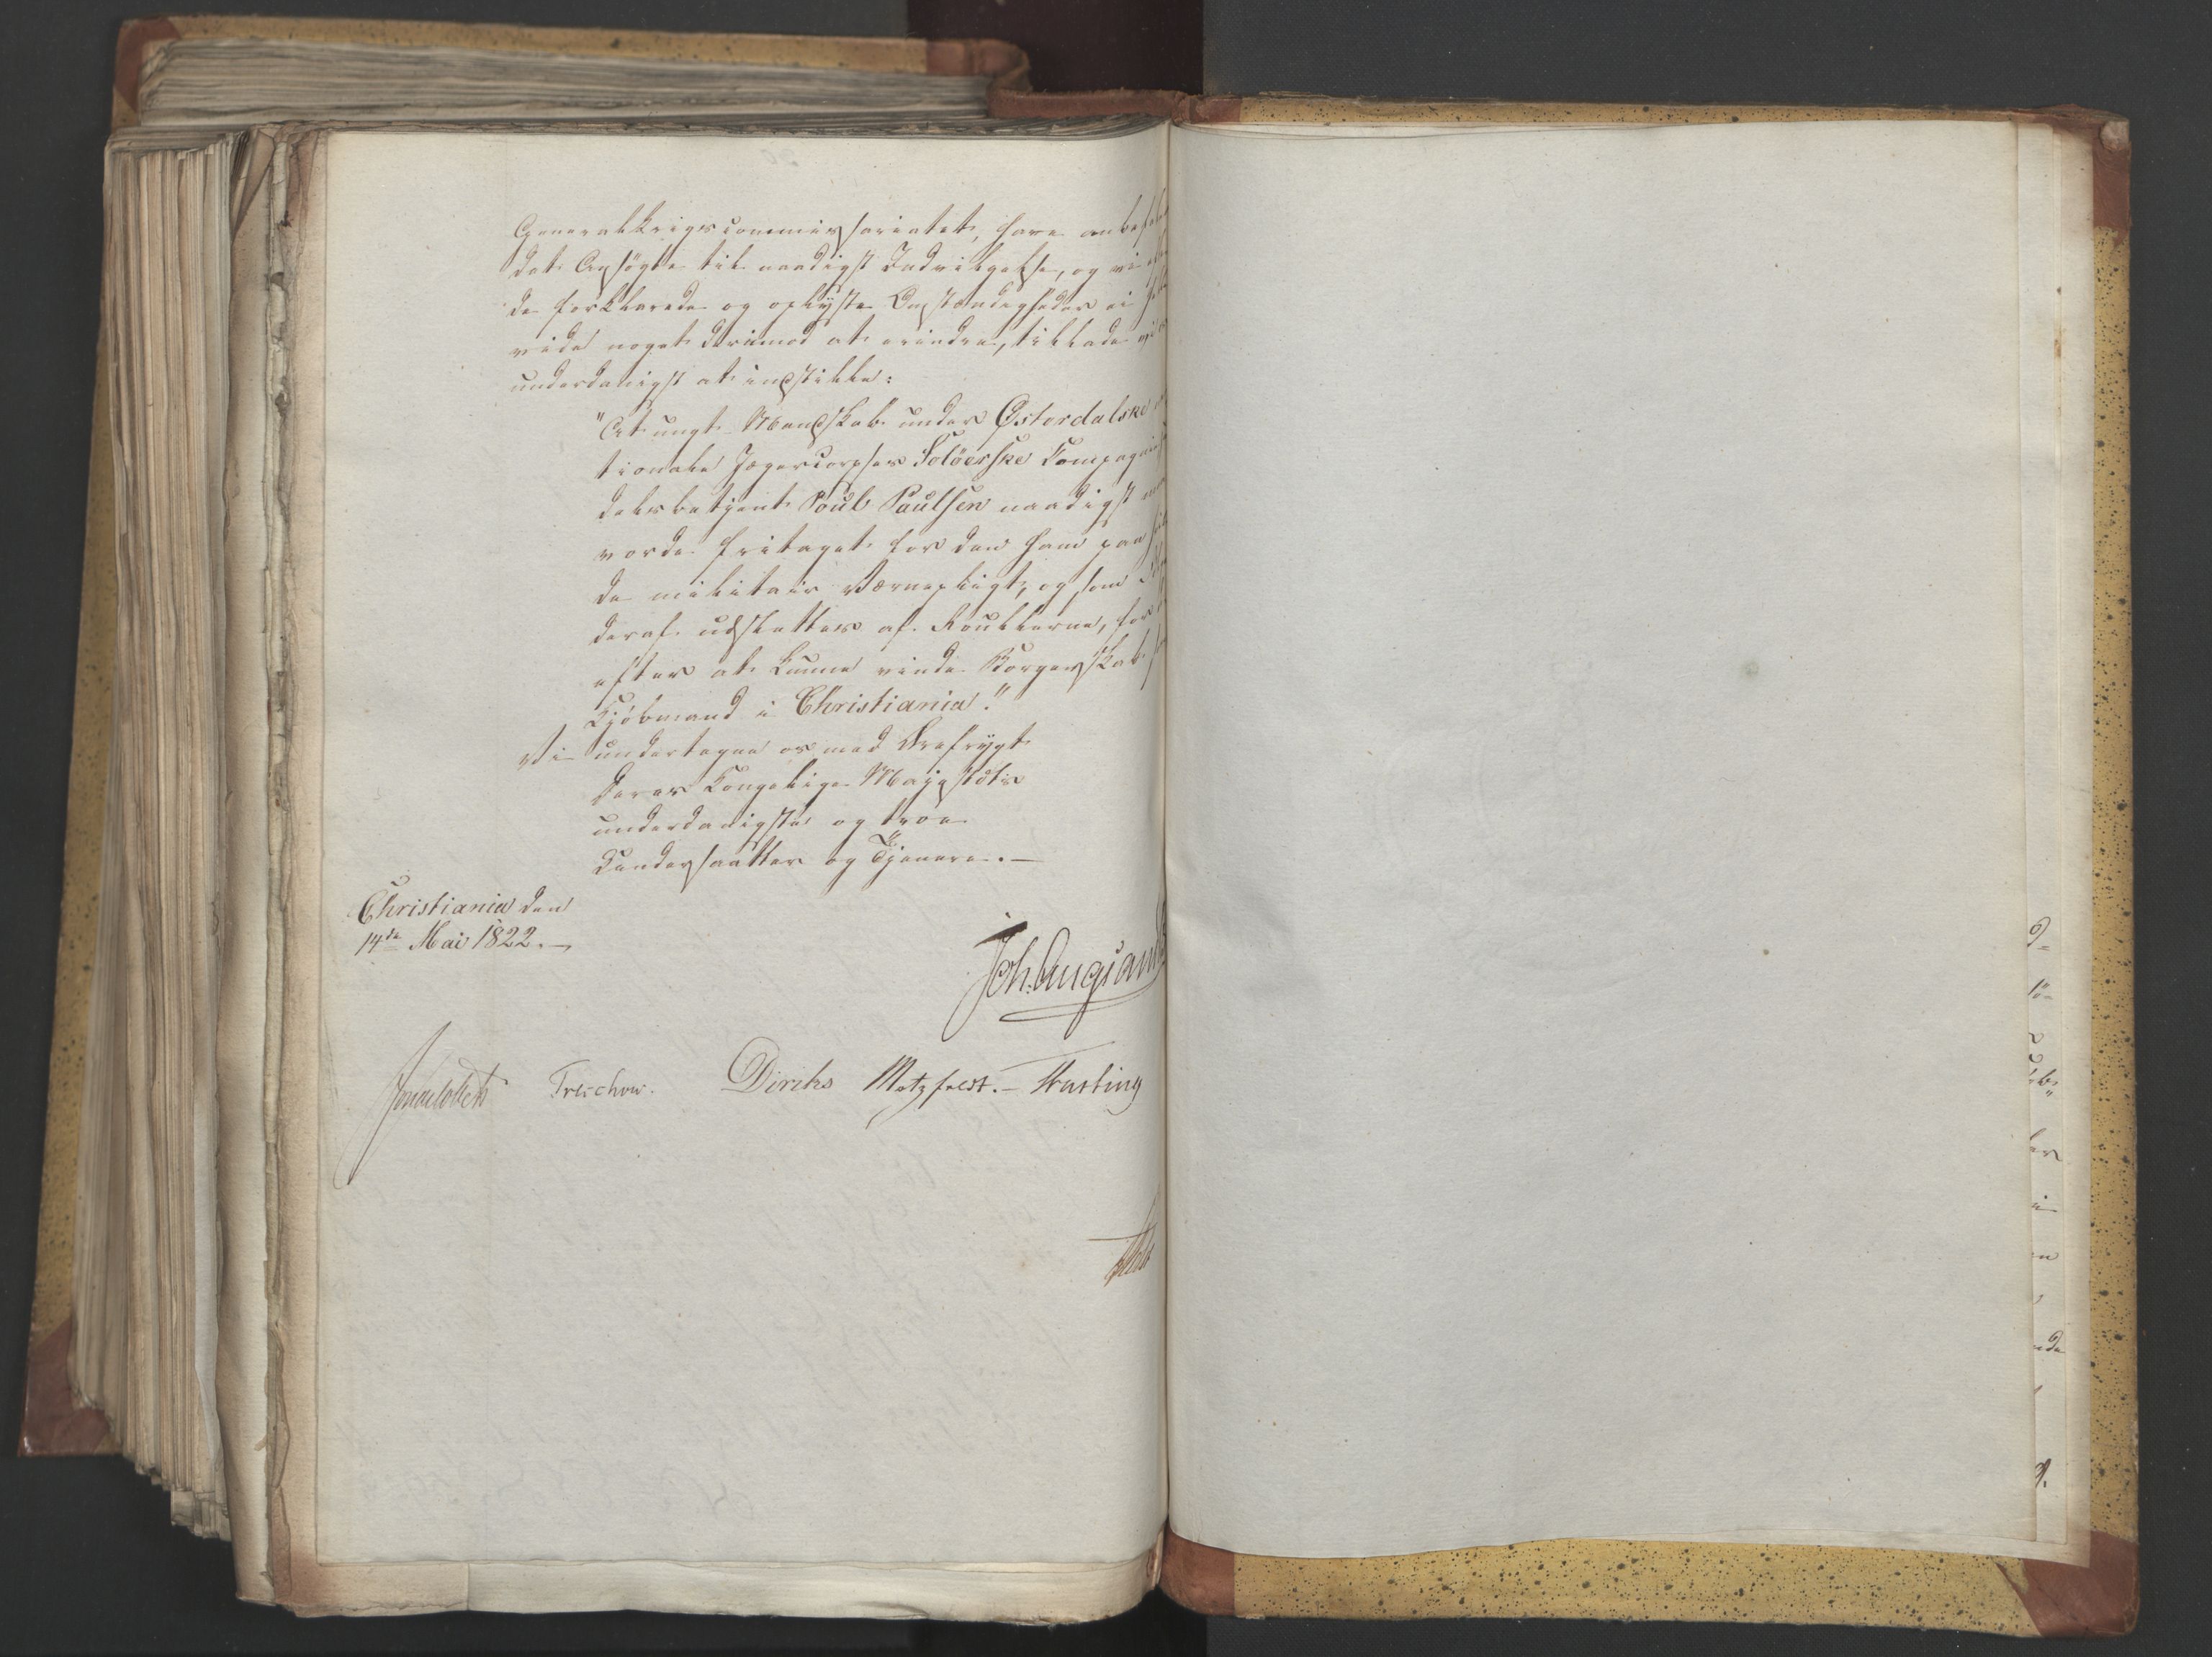 Generalkrigscommissariatet, have anbefal
det Ansögte til naadigst Indvilgelse, og vi
de forklarede og oplyste Omstændigheder ei
vide noget derimod at erindre, tillade vi
underdanigst at indstille:
"At ungt Mandskab under Østerdalske
tionale Jægercorpses Solöerske Compagnie
delsbetjent Poul Paulsen naadigst
vorde fritaget for den ham paa
de militair Værnepligt, og som
deraf udslettes af Roullerne, for
efter at kunne vinde Borgerskab
Kjöbmand i Christiania."
Vi undertegne os med Ærefrygt
Deres Kongelige Majestæts
underdanigste og troe
Undersaatter og Tjenere. —
Christiania den
14de Mai 1822. —
Joh. Aug. Sand
Jonas Collett Treschow. Diriks Motzfeldt. — Fasting
9-
lö-
ler
i
n
nde